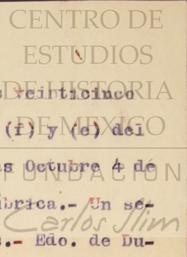 CENTRO DE
ESTUDIOS
s veinticinco
DE HISTORIA
(f) y (e) del
DE MEXICO
as Octubre 4 de
FUNDACION
brica.- Un se-
Carlos Slim
s.- Edo. de Du-